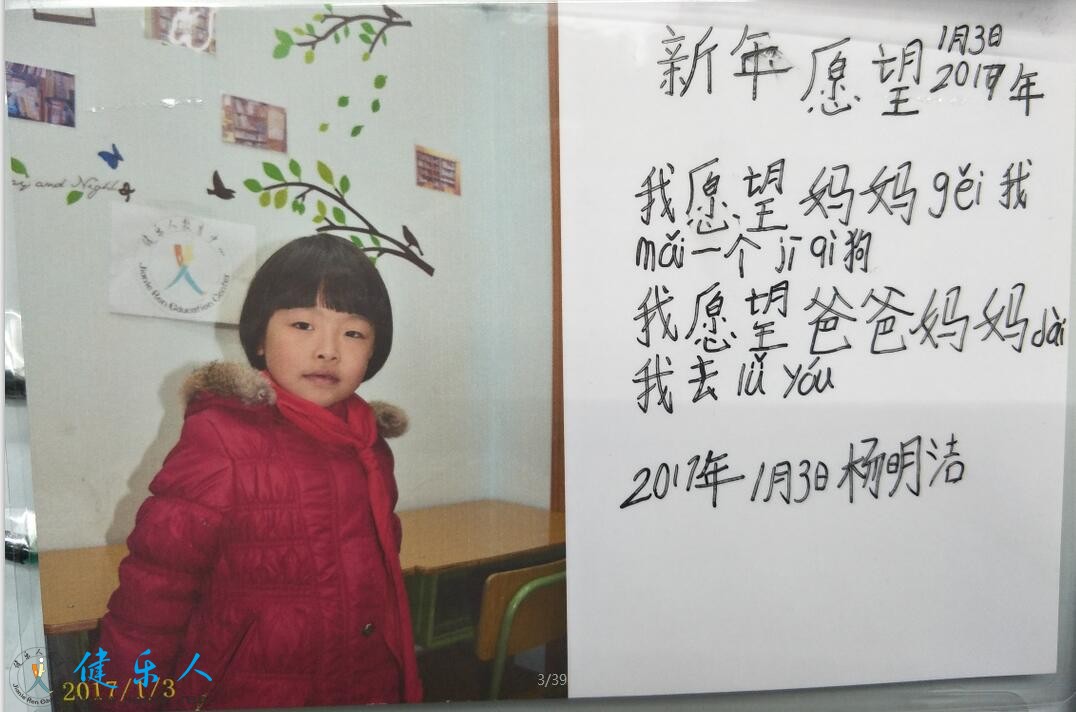 新年愿望
1月3日
2017年
我愿望妈妈gěi我
mǎi一个jī qì狗
我愿望爸爸妈妈dài
我去lǚ yóu
2017年1月3日杨明洁
and Night
健乐人教育中心
Jianle Ren Education Center
健乐人
2017/1/3
3/39